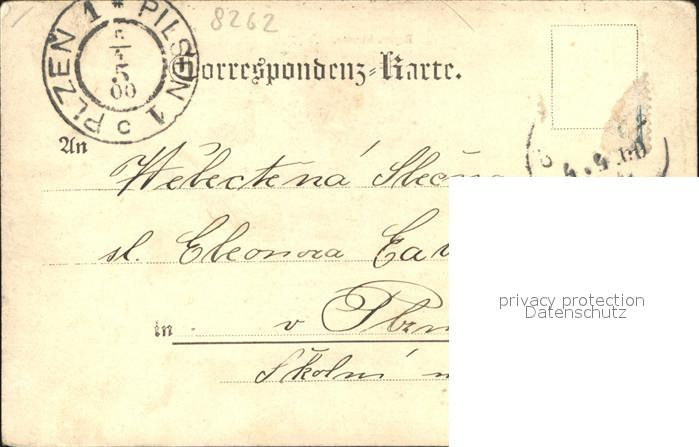 8262
1 * PILSEN 1 o PLZEŇ
5
00
Correspondenz-Karte.
An
Welectená Slečna
sl. Eleonora
in v
Školní
privacy protection
Datenschutz